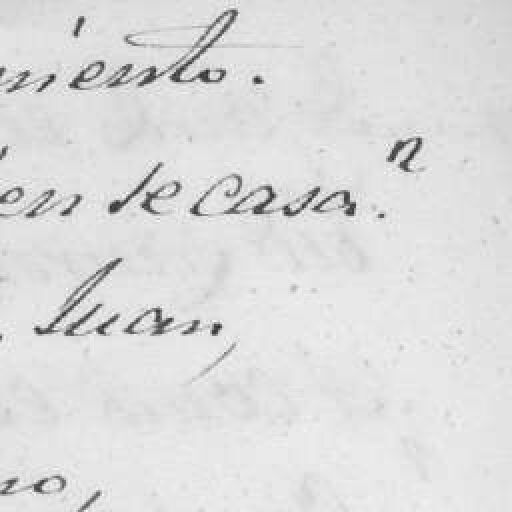 miento.
en se casa.n
Juan,
no,